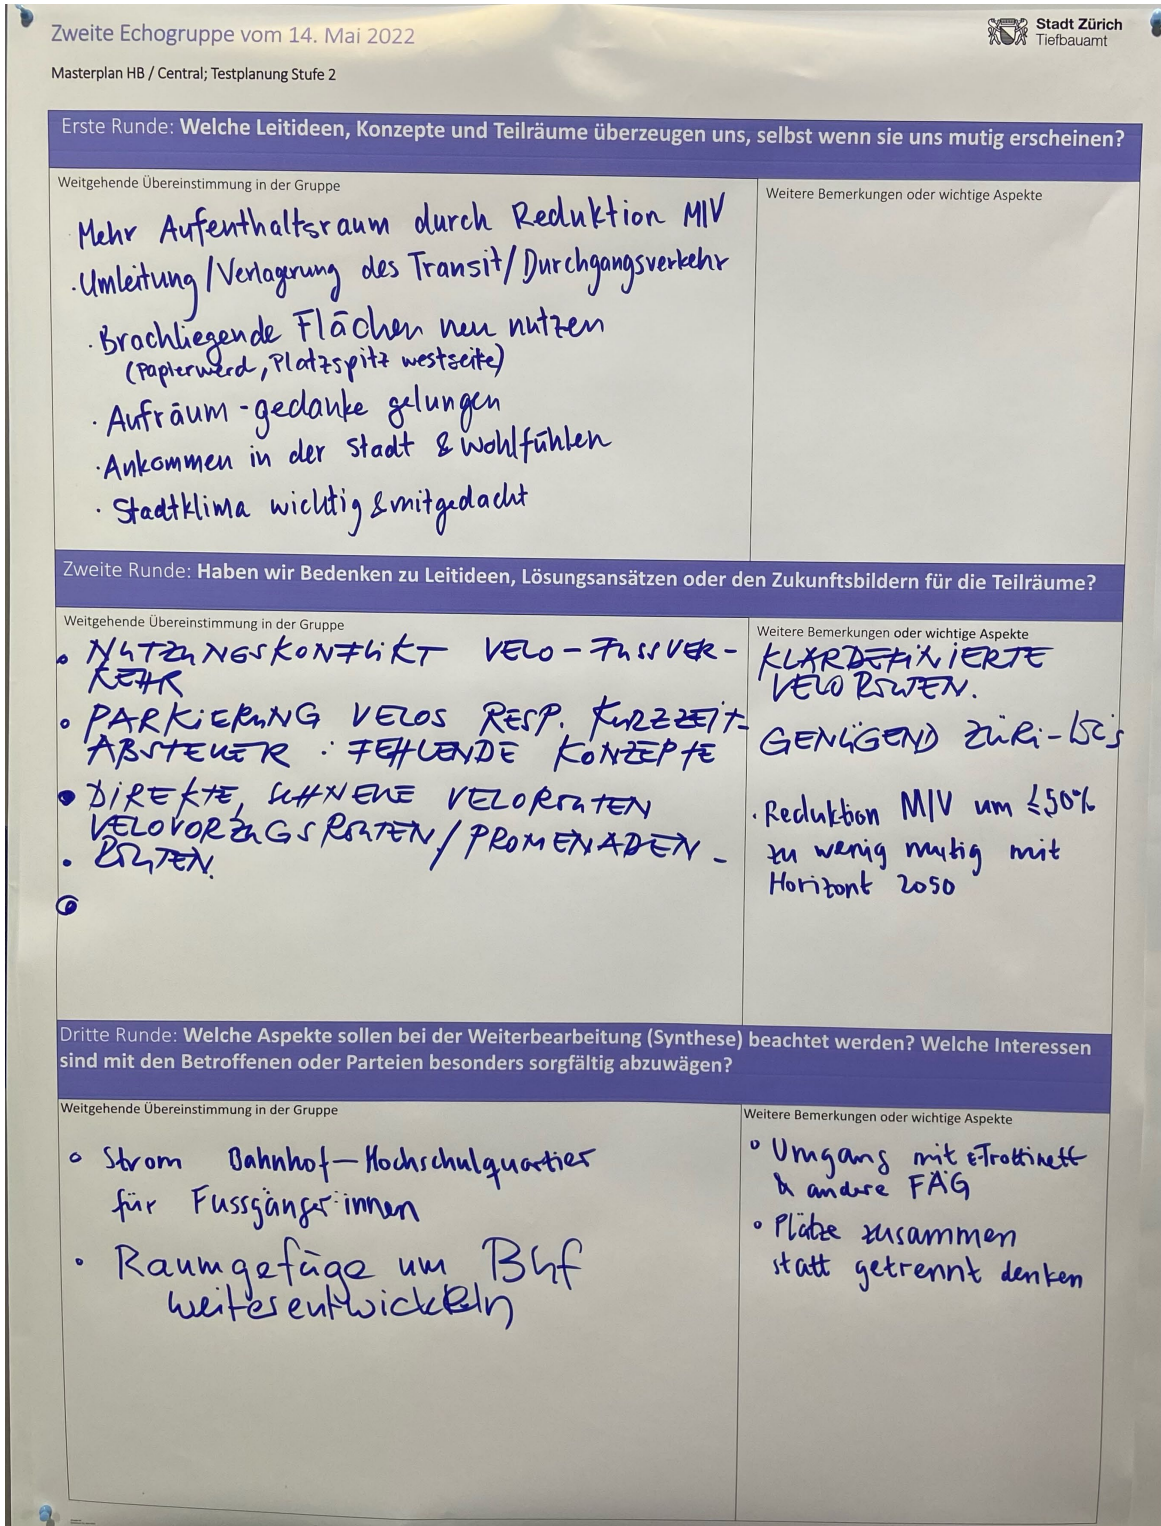 Zweite Echogruppe vom 14. Mai 2022
Stadt Zürich
Tiefbauamt
Masterplan HB / Central; Testplanung Stufe 2
Erste Runde: Welche Leitideen, Konzepte und Teilräume überzeugen uns, selbst wenn sie uns mutig erscheinen?
Weitgehende Übereinstimmung in der Gruppe
Mehr Aufenthaltsraum durch Reduktion MIV
· Umleitung/Verlagerung des Transit/Durchgangsverkehr
· Brachliegende Flächen neu nutzen
(Papierwerd, Platzspitz westseite)
· Aufräum-gedanke gelungen
· Ankommen in der Stadt & Wohlfühlen
· Stadtklima wichtig & mitgedacht
Weitere Bemerkungen oder wichtige Aspekte
Zweite Runde: Haben wir Bedenken zu Leitideen, Lösungsansätzen oder den Zukunftsbildern für die Teilräume?
Weitgehende Übereinstimmung in der Gruppe
• NUTZUNGSKONFLIKT VELO-FUSSVER-
KEHR
• PARKIERUNG VELOS RESP. KURZZEIT-
ABSTELLER : FEHLENDE KONZEPTE
• DIREKTE, SCHNELLE VELOROUTEN
VELOVORZUGSROUTEN/PROMENADEN-
• ROUTEN.
•
Weitere Bemerkungen oder wichtige Aspekte
KLARDEFINIERTE
VELOROUTEN.
GENÜGEND ZÜRI-WC's
· Reduktion MIV um ≤50%
zu wenig mutig mit
Horizont 2050
Dritte Runde: Welche Aspekte sollen bei der Weiterbearbeitung (Synthese) beachtet werden? Welche Interessen
sind mit den Betroffenen oder Parteien besonders sorgfältig abzuwägen?
Weitgehende Übereinstimmung in der Gruppe
• Strom Bahnhof–Hochschulquartier
für Fussgänger:innen
• Raumgefüge um Bhf
weiterentwickeln
Weitere Bemerkungen oder wichtige Aspekte
• Umgang mit E-Trottinett
& andere FÄG
• Plätze zusammen
statt getrennt denken